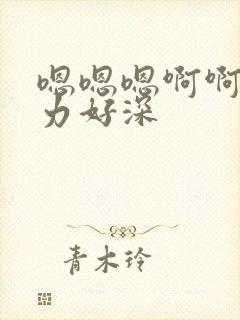 嗯嗯嗯啊啊
力好深
青木玲